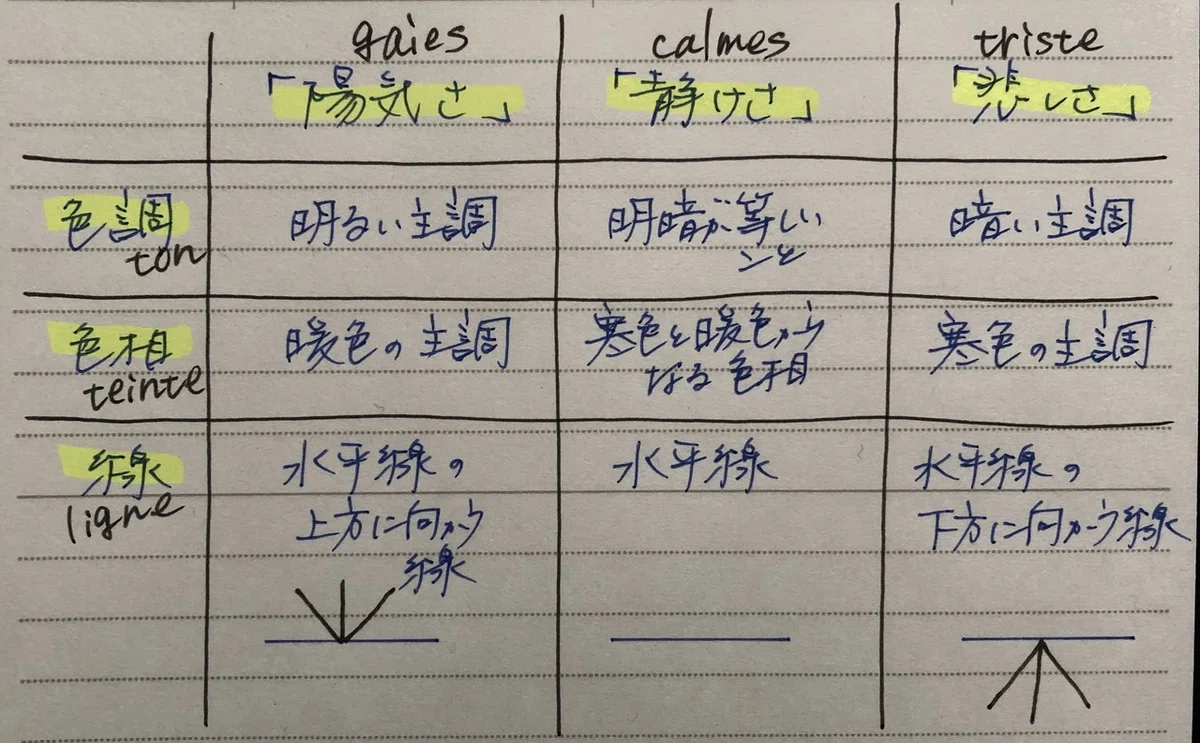 gaies
calmes
triste
「陽気さ」
「静けさ」
「悲しさ」
色調
ton
明るい主調
明暗が等しい
こと
暗い主調
色相
teinte
暖色の主調
寒色と暖色から
なる色相
寒色の主調
線
ligne
水平線の
上方に向かう
線
水平線
水平線の
下方に向かう線